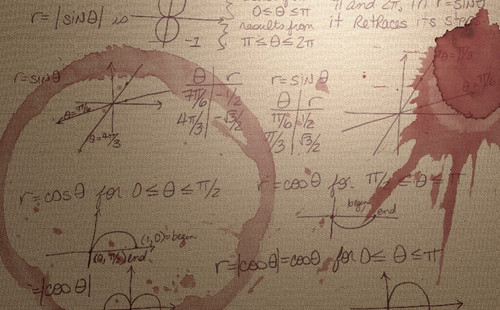 r=|sinθ| is
-1
0≤θ≤π
results from
π≤θ≤2π
π and 2π, in r=sinθ
it retraces its
r=sinθ
θ=π/6
θ=4π/3
θ r
7π/6 -1/2
4π/3 -√3/2
r=sinθ
θ r
π/6 1/2
π/3 √3/2
r=cosθ for 0≤θ≤π/2
(1,0)=begin
(0,π/2)end
r=cosθ for π/2≤θ≤π
begin
end
r=|cosθ|=cosθ for 0≤θ≤π
=|cosθ|